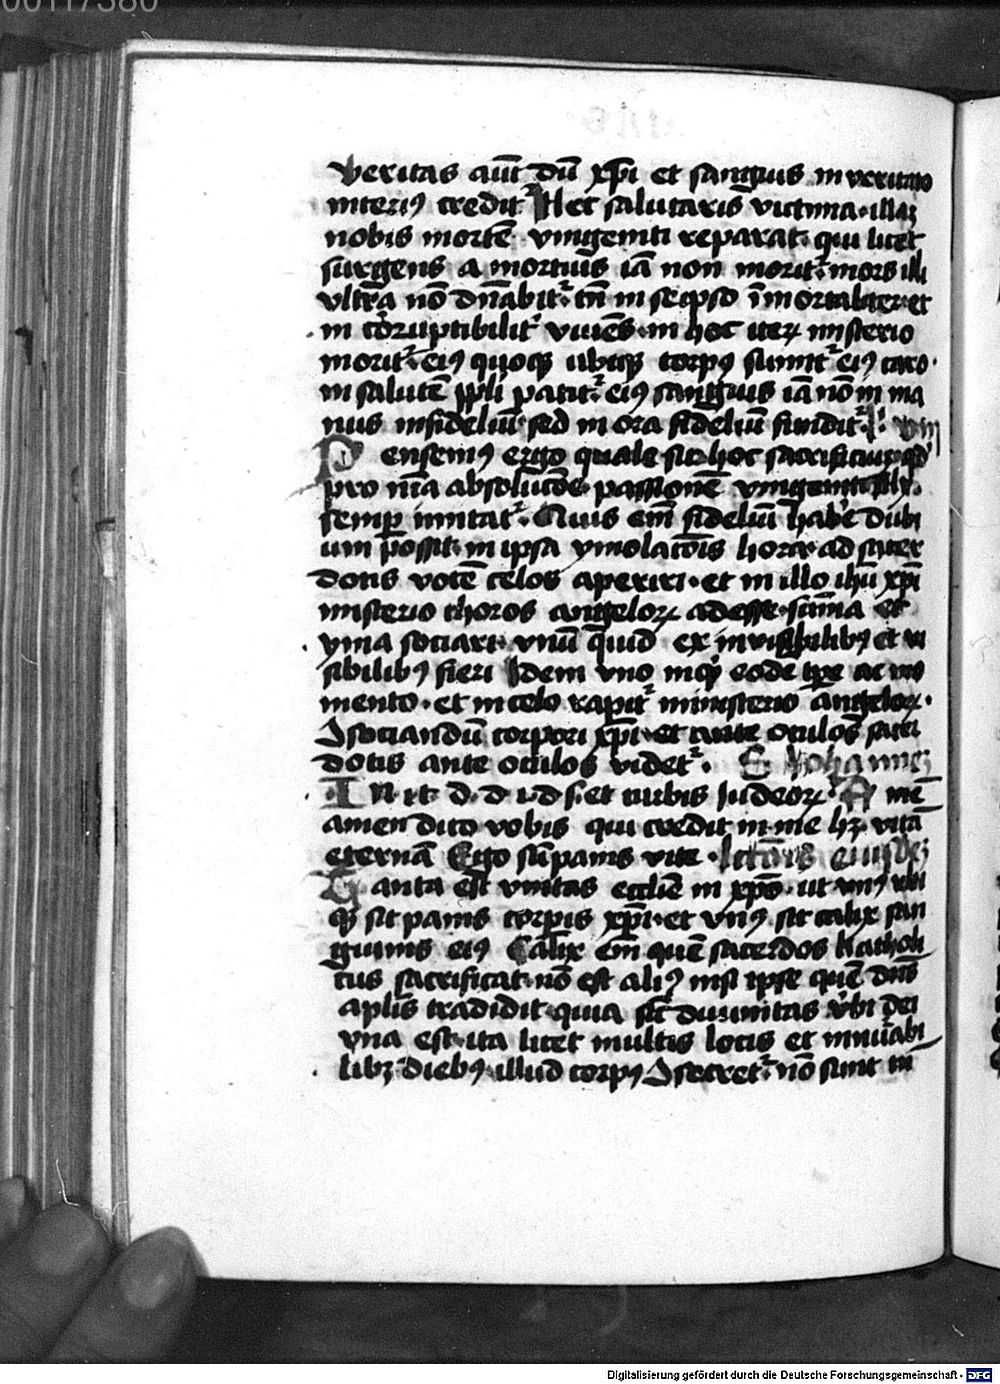 00117380
veritas aut̄ dū xp̄i et sanguis in veritate
interi9 credit᷑ Hec salutaris victima · illaȝ
nobis mortē vnigeniti reparat · qui licet
surgens a mortuis iā non morit᷑ mors illi
vltra nō dn̄abit᷑ tn̄ in seipso īmortaliter et
in corruptibilit᷑ viuēs · in hoc iterꝝ misterio
morit᷑ · ei9 quoqꝫ ubiqꝫ corp9 sumit᷑ ei9 caro ·
in salutē ppli patit᷑ · ei9 sanguis iā nō in ma
nus infideliū · sed in ora fideliū fundit᷑
Pensem9 ergo quale sit hoc sacrificiū · qd'
pro nr̄a absolucōe · passionē vnigeniti filij ·
semp imitat᷑ · Quis em̄ fideliū habe᷑ dubi
um possit · in ipsa ymolacōis hora · ad sacer
dotis vocē celos aperiri · et in illo ih̄u xp̄i
misterio choros angeloꝝ adesse · sūma et
yma sociari · vnū quid ex invisibilibꝫ et vi
sibilibꝫ fieri Idem vno inqꝫ eodē tp̄e ac mo
mento · et in celo rapit᷑ ministerio angeloꝝ ·
ꝯsociandū corpori xp̄i · et ante oculos sacer
dotis ante oculos videt᷑ · Johannes
In · i · t · d · d · i · d · s · et turbis Iudeoꝝ · Amē
amen dico vobis qui credit in me hꝫ vitā
eternā Ego sū panis vite · eiusdeȝ
Tanta est vnitas ecclie in xp̄o · ut vn9 ubi
qꝫ sit panis corpis xp̄i · et vn9 sit calix san
guinis ei9 Calix em̄ quē sacerdos katholi
cus sacrificat · nō est ali9 nisi ipse quē dn̄s
aplis tradidit · quia sic᷑ diuinitas v̄bi dei
vna est · ita licet multis locis et innu᷑abi
libꝫ diebꝫ · illud corp9 ꝯsecret᷑ nō sunt tn̄
Digitalisierung gefördert durch die Deutsche Forschungsgemeinschaft - DFG